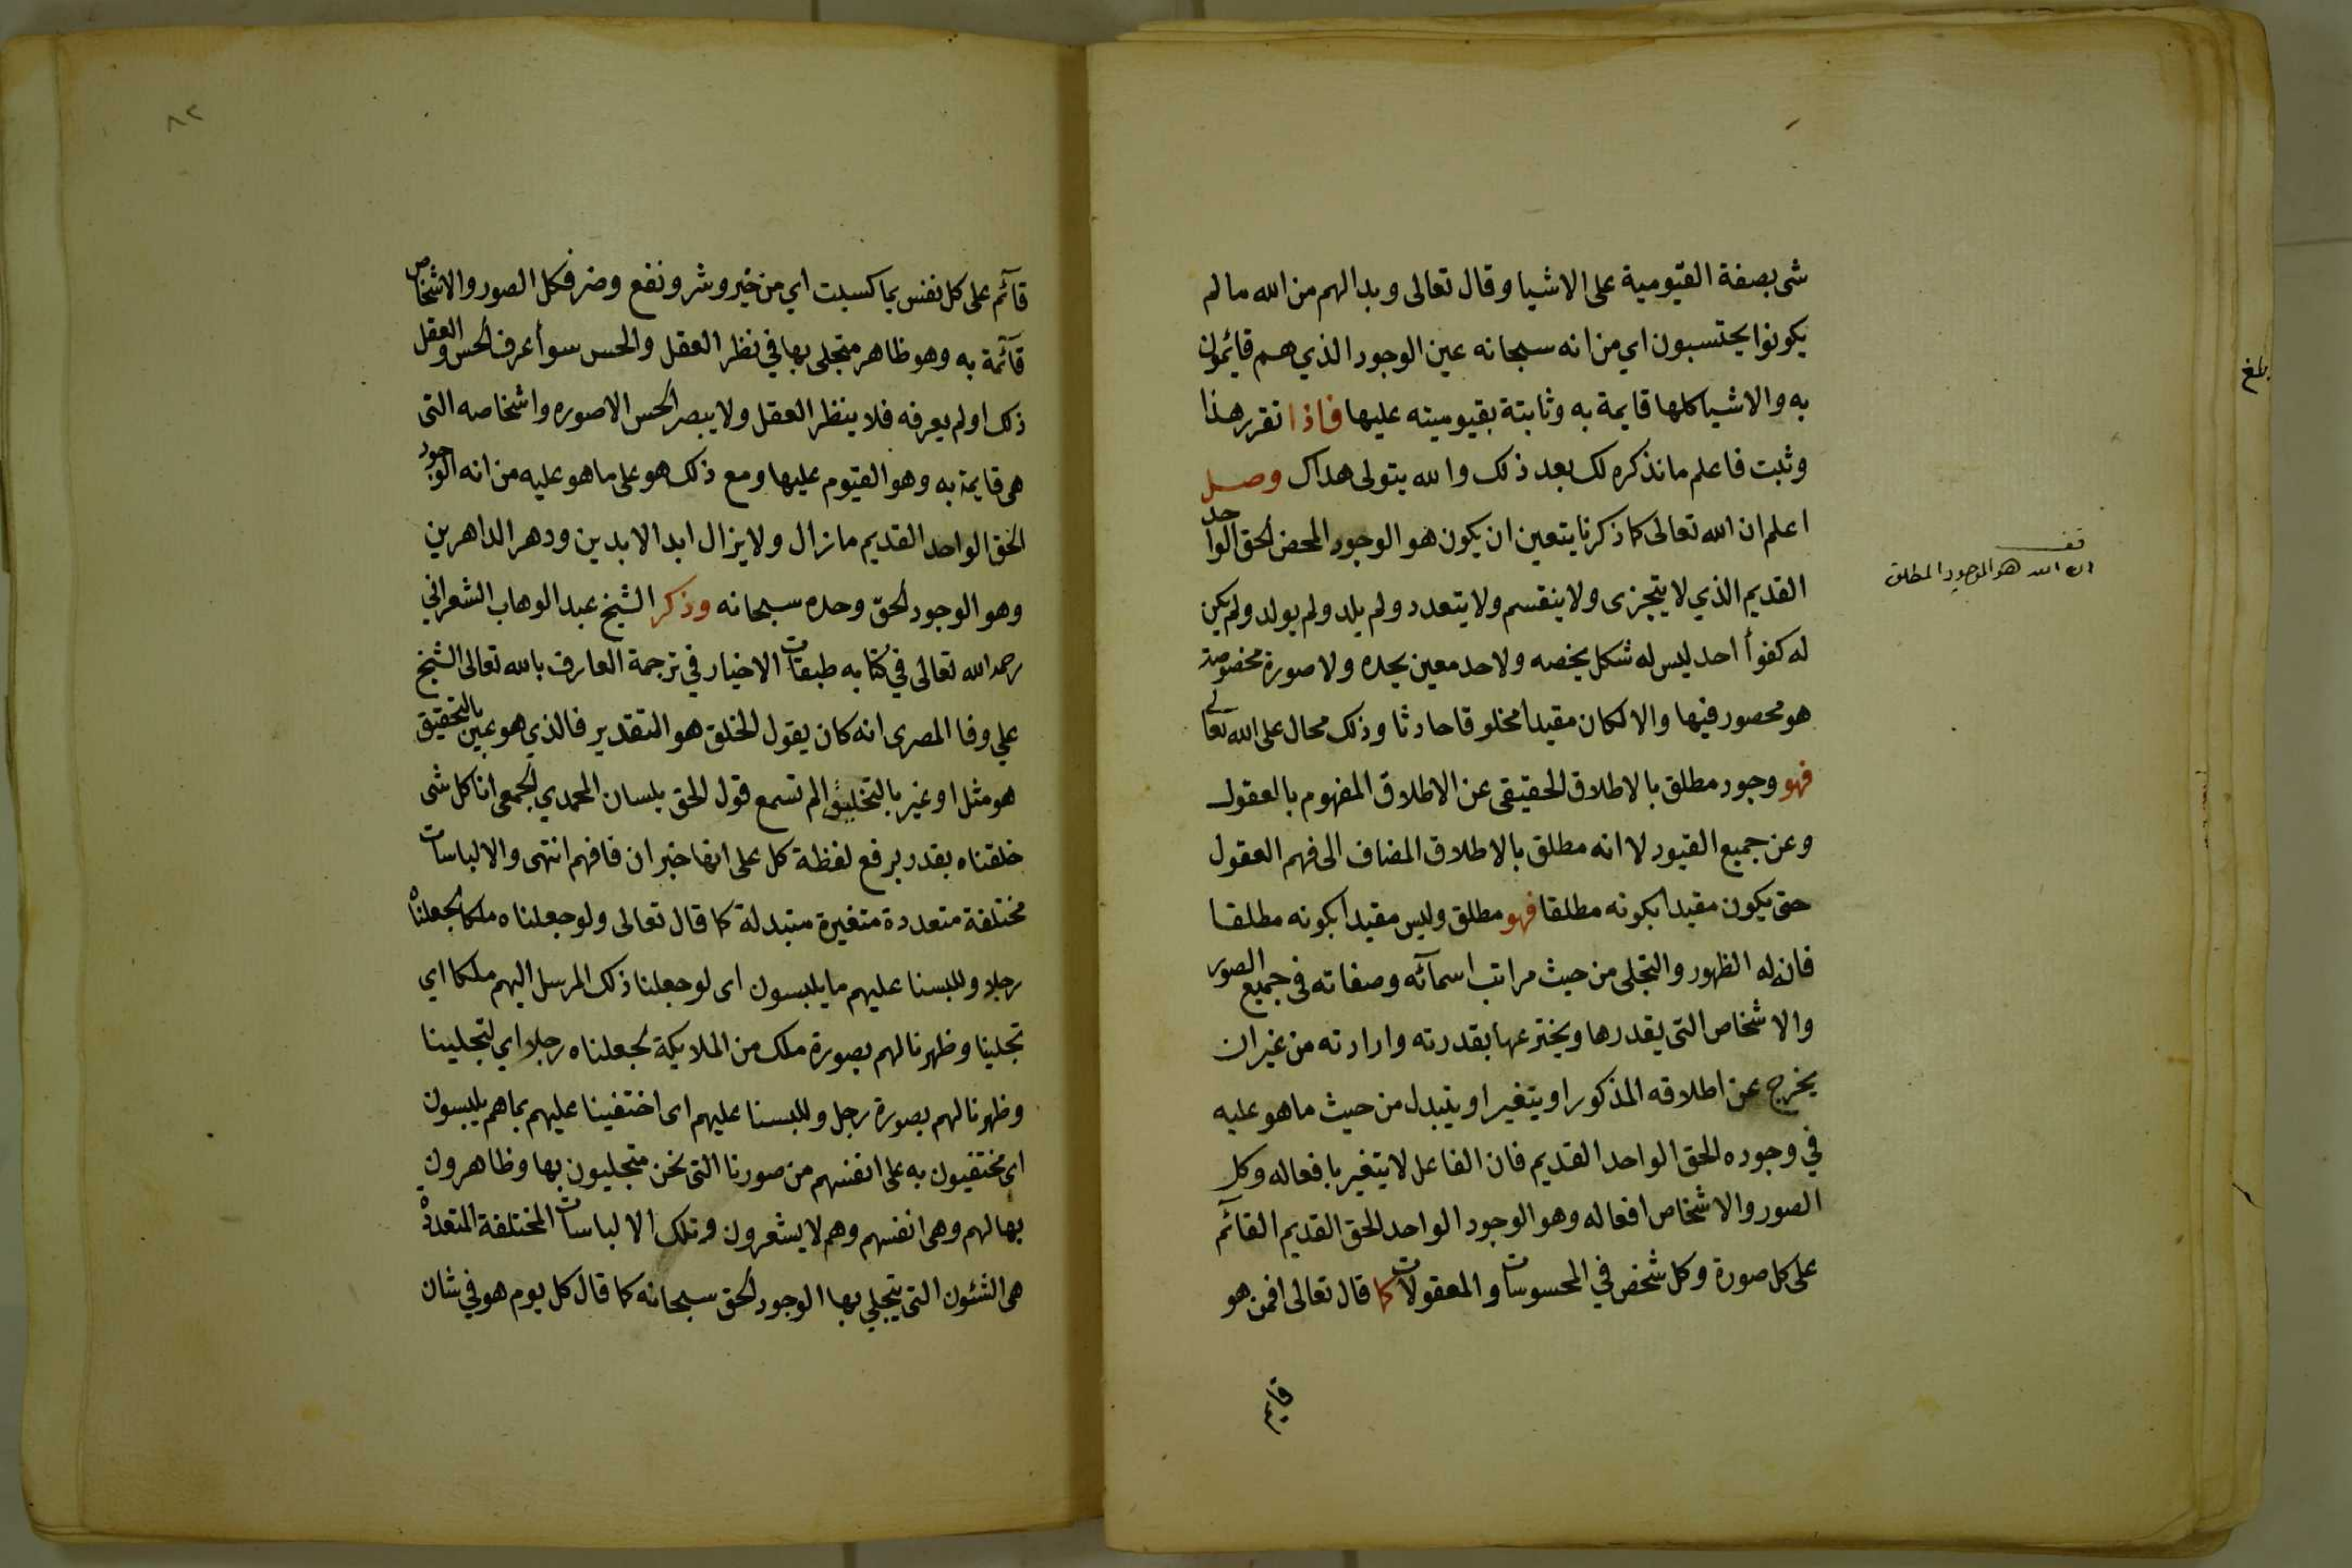 شى بصفة القيّومية على الاشيا وقال تعالى وبدا لهم من الله ما لم
يكونوا يحتسبون اي من انه سبحانه عين الوجود الذي هم قايمون
به والاشيا كلها قايمة به وثابتة بقيوميته عليها فاذا تقرر هذا
وثبت فاعلم ما نذكره لك بعد ذلك والله يتولى هداك وصل
اعلم ان الله تعالى كما ذكرنا يتعين ان يكون هو الوجود المحض الحق الواحد
القديم الذي لا يتجزى ولا ينقسم ولا يتعدد ولم يلد ولم يولد ولم يكن
له كفوأ احد ليس له شكل يخصه ولا حد معين يحده ولا صورة مخصوصة
هو محصور فيها والا لكان مقيدا مخلوقا حادثا وذلك محال على الله تعالى
فهو وجود مطلق بالاطلاق الحقيقى عن الاطلاق المفهوم بالعقول
وعن جميع القيود لا انه مطلق بالاطلاق المضاف الى فهم العقول
حتى يكون مقيدا بكونه مطلقا فهو مطلق وليس مقيدا بكونه مطلقا
فان له الظهور والتجلى من حيث مراتب اسمآئه وصفاته فى جميع الصور
والاشخاص التى يقدرها ويخترعها بقدرته وارادته من غير ان
يخرج عن اطلاقه المذكور او يتغير او يتبدل من حيث ما هو عليه
في وجوده الحق الواحد القديم فان الفاعل لا يتغير بافعاله وكل
الصور والاشخاص افعاله وهو الوجود الواحد الحق القديم القائم
على كل صورة وكل شخص في المحسوسات والمعقولات كما قال تعالى افمن هو
قائم
قف
ان الله هو الوجود المطلق
بلغ
٨٢
قآئم على كل نفس بما كسبت اي من خير وشر ونفع وضر فكل الصور والاشخاص
قآئمة به وهو ظاهر متجلى بها في نظر العقل والحس سوأ عرف الحس والعقل
ذلك او لم يعرفه فلا ينظر العقل ولا يبصر الحس الا صوره واشخاصه التى
هى قايمة به وهو القيوم عليها ومع ذلك هو على ما هو عليه من انه الوجود
الحق الواحد القديم ما زال ولا يزال ابد الابدين ودهر الداهرين
وهو الوجود الحقّ وحده سبحانه وذكر الشيخ عبد الوهاب الشعراني
رحمه الله تعالى في كتابه طبقات الاخيار في ترجمة العارف بالله تعالى الشيخ
علي وفا المصرى انه كان يقول الخلق هو التقدير فالذي هو عين بالتحقيق
هو مثل او غير بالتخليق الم تسمع قول الحق بلسان المحمدي الجمعى انا كل شى
خلقناه بقدر برفع لفظة كل على انها خبر ان فافهم انتهى والالباسات
مختلفة متعددة متغيرة متبدلة كما قال تعالى ولو جعلناه ملكا لجعلناه
رجلا وللبسنا عليهم ما يلبسون اى لو جعلنا ذلك المرسل اليهم ملكا اي
تجلينا وظهرنا لهم بصورة ملك من الملايكة لجعلناه رجلا اي لتجلينا
وظهرنا لهم بصورة رجل وللبسنا عليهم اى اختفينا عليهم بما هم يلبسون
اى مختفيون به على انفسهم من صورنا التى نحن متجليون بها وظاهرون
بها لهم وهى انفسهم وهم لا يشعرون وتلك الالباسات المختلفة المتعددة
هى الشئون التى يتجلي بها الوجود الحق سبحانه كما قال كل يوم هو في شان